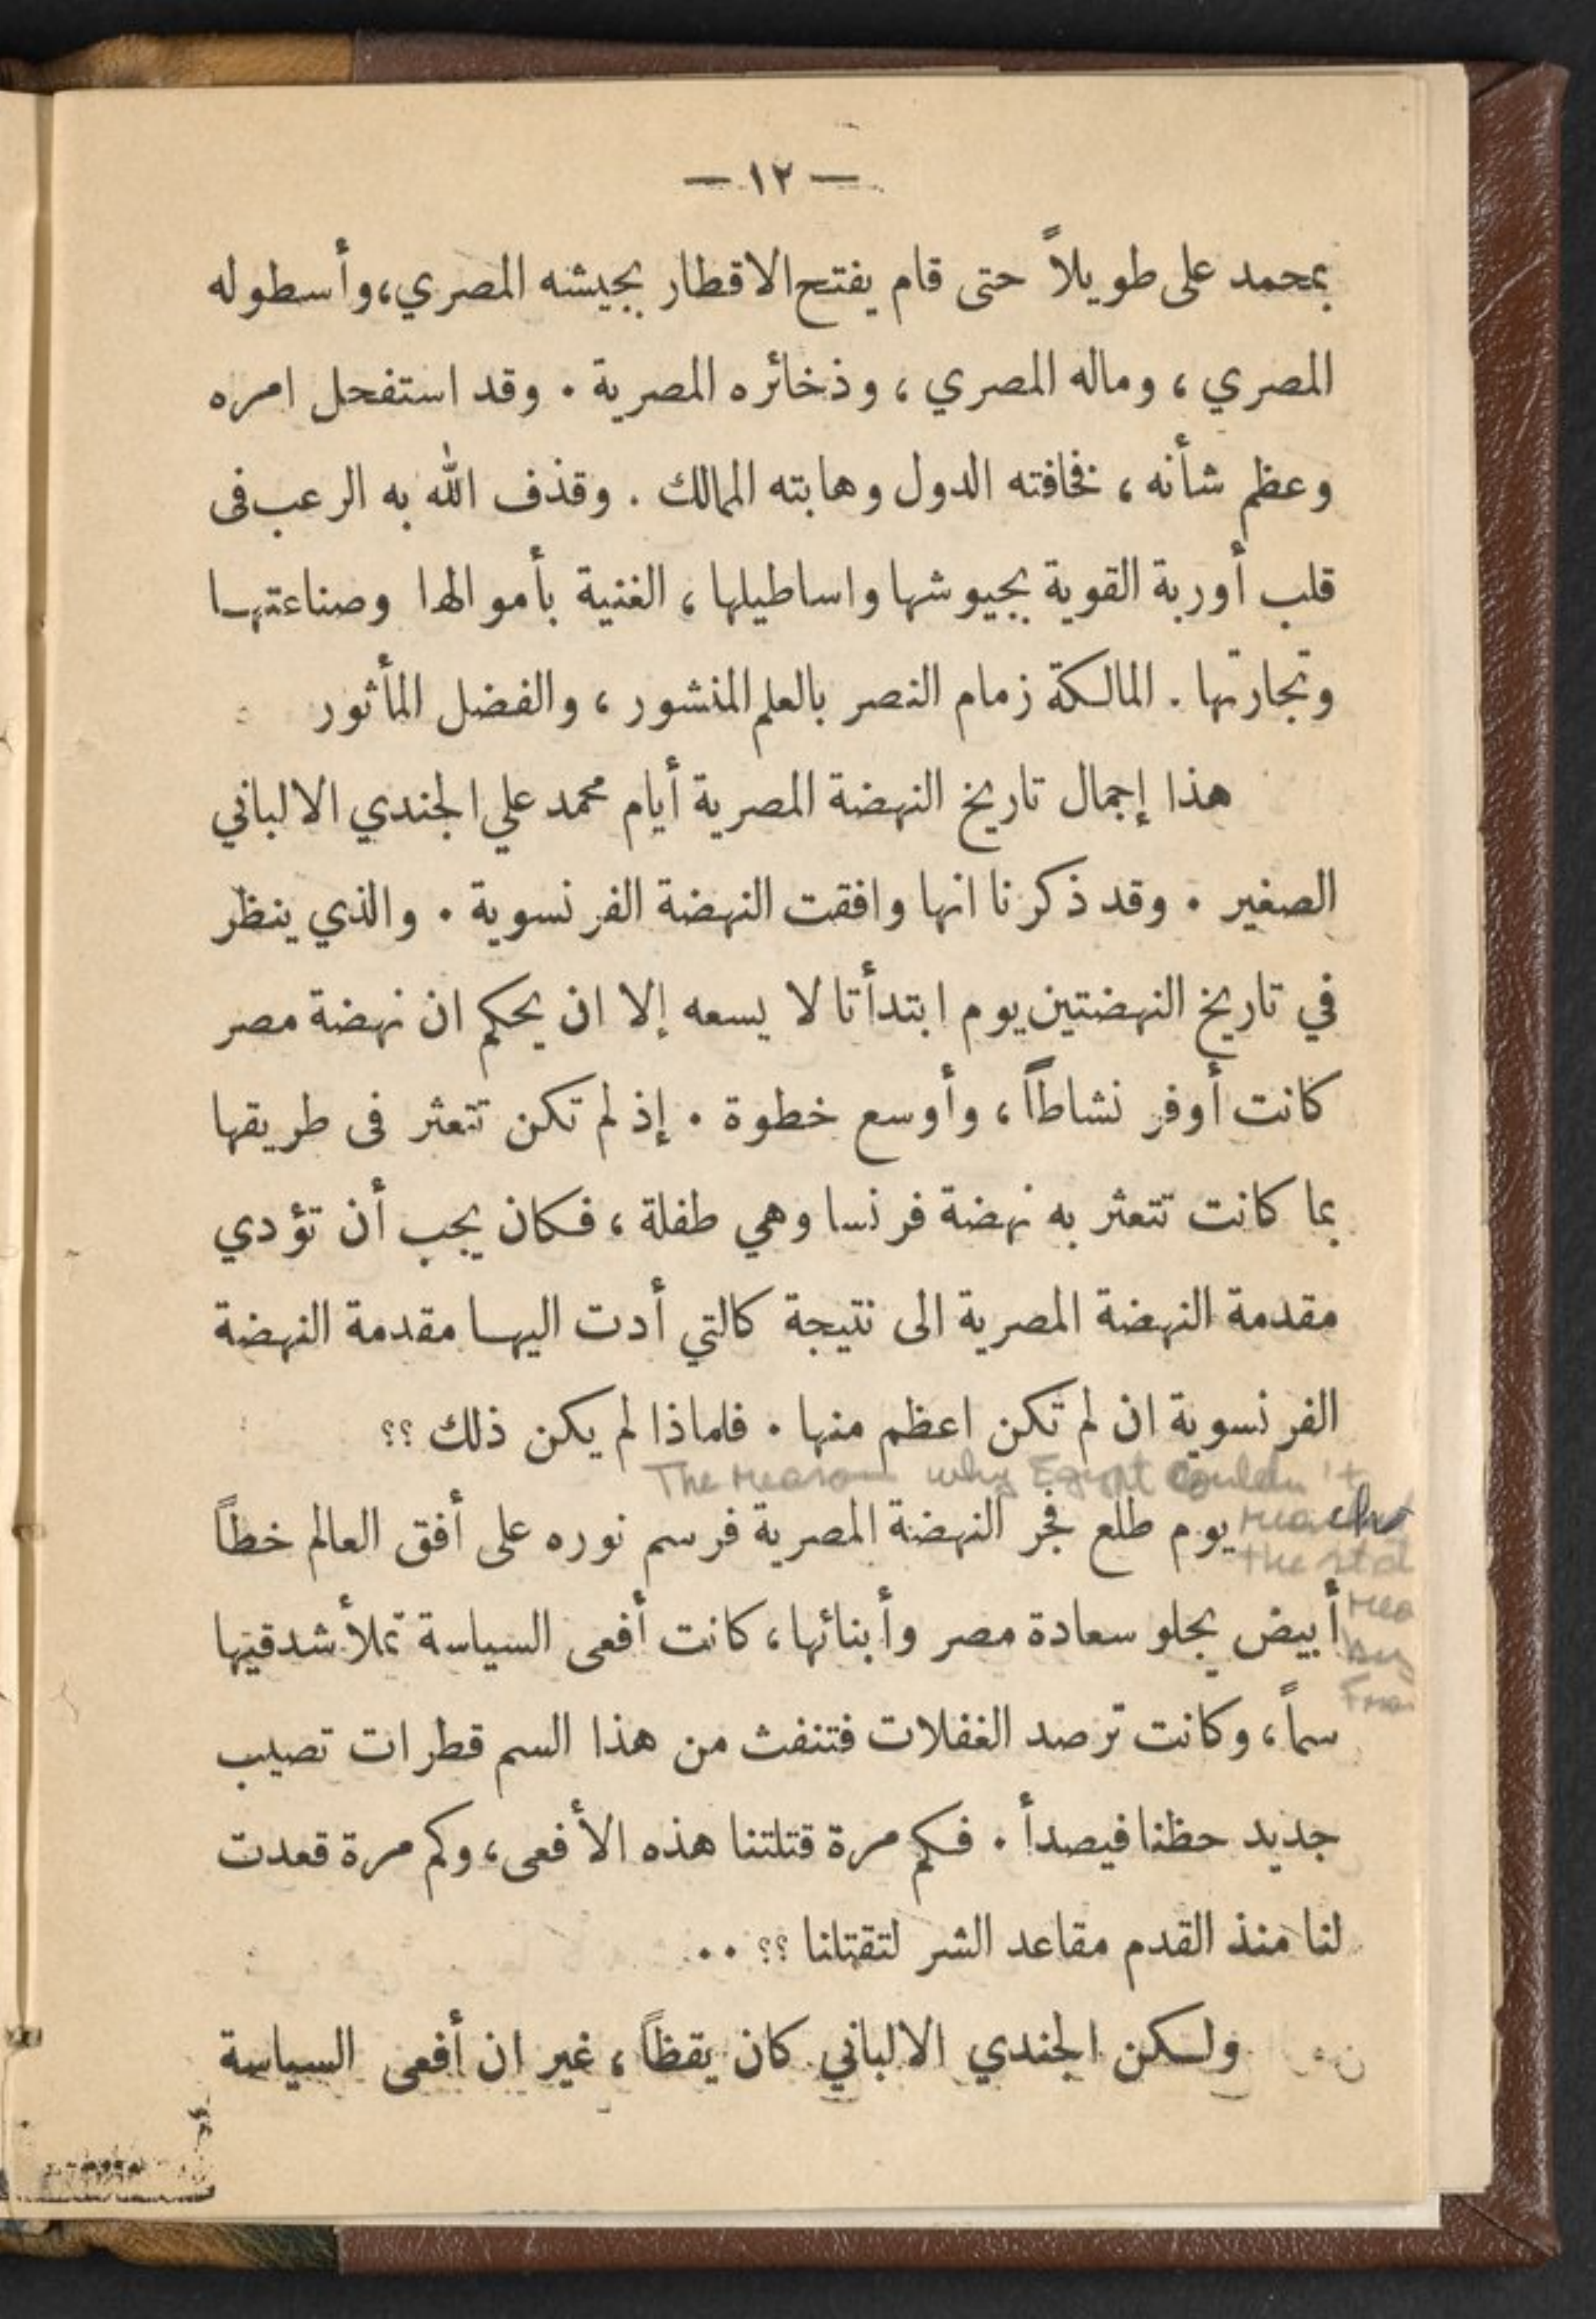 — ١٢ —
بمحمد على طويلاً حتى قام يفتح الاقطار بجيشه المصري، وأسطوله
المصري، وماله المصري، وذخائره المصرية. وقد استفحل امره
وعظم شأنه، فخافته الدول وهابته الممالك. وقذف الله به الرعب فى
قلب أوربة القوية بجيوشها واساطيلها، الغنية بأموالها وصناعتها
وتجارتها. المالكة زمام النصر بالعلم المنشور، والفضل المأثور
هذا إجمال تاريخ النهضة المصرية أيام محمد علي الجندي الالباني
الصغير. وقد ذكرنا انها وافقت النهضة الفرنسوية. والذي ينظر
في تاريخ النهضتين يوم ابتدأتا لا يسعه إلا ان يحكم ان نهضة مصر
كانت أوفر نشاطاً، وأوسع خطوة. إذ لم تكن تتعثر فى طريقها
بما كانت تتعثر به نهضة فرنسا وهي طفلة، فكان يجب أن تؤدي
مقدمة النهضة المصرية الى نتيجة كالتي أدت اليها مقدمة النهضة
الفرنسوية ان لم تكن اعظم منها. فلماذا لم يكن ذلك ؟؟
The reason why Egypt couldn't
يوم طلع فجر النهضة المصرية فرسم نوره على أفق العالم خطاً
reach
the
أبيض يجلو سعادة مصر وأبنائها، كانت أفعى السياسة تملأ شدقيها
by
سماً، وكانت ترصد الغفلات فتنفث من هذا السم قطرات تصيب
جديد حظنا فيصدأ. فكم مرة قتلتنا هذه الأفعى، وكم مرة قعدت
لنا منذ القدم مقاعد الشر لتقتلنا ؟؟ ..
ولكن الجندي الالباني كان يقظاً، غير ان أفعى السياسة